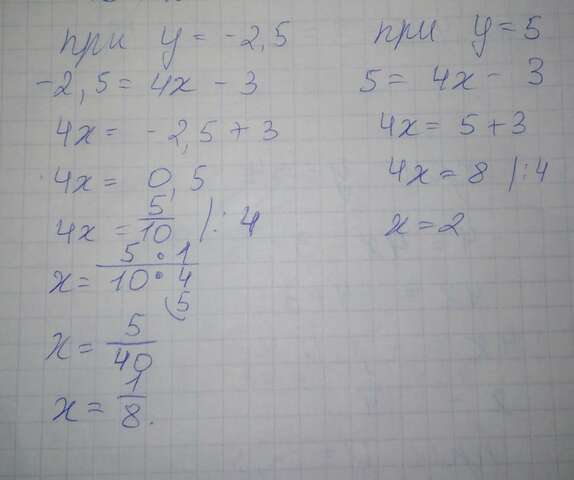 при y = -2,5
-2,5 = 4x - 3
4x = -2,5 + 3
4x = 0,5
4x = 5/10 |:4
x = 5•1/10•4
(5
x = 5/40
x = 1/8.
при y = 5
5 = 4x - 3
4x = 5 + 3
4x = 8 |:4
x = 2